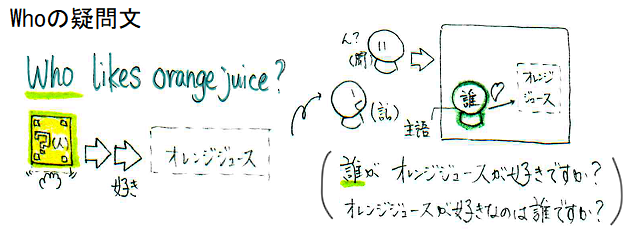 Whoの疑問文
Who likes orange juice?
?(人)
好き
オレンジジュース
ん?
(聞)
(話)
誰
主語
オレンジ
ジュース
誰が オレンジジュースが好きですか?
オレンジジュースが好きなのは誰ですか?